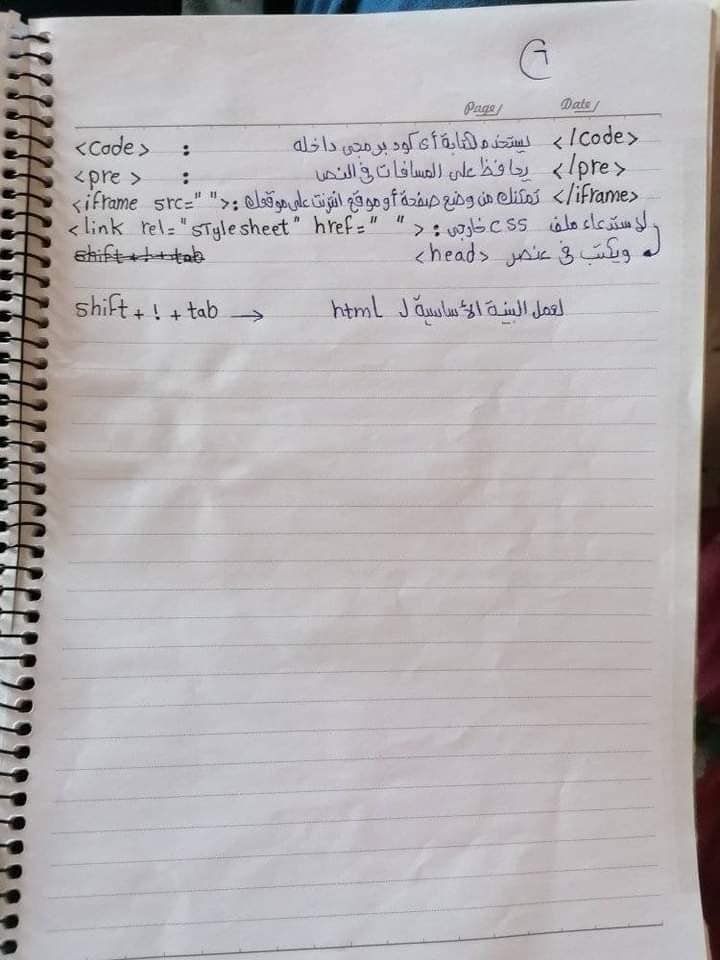 ٦
Page/ Date/
<code> : يستخدم لكتابة أي كود برمجي داخله </code>
<pre> : يحافظ على المسافات في النص </pre>
<iframe src=" ">: تمكنك من وضع صفحة أو موقع انترنت على موقعك </iframe>
<link rel="stylesheet" href=" "> : لاستدعاء ملف css خارجي
shift + ! + tab ويكتب في عنصر <head>
shift + ! + tab → لعمل البنية الأساسية ل html